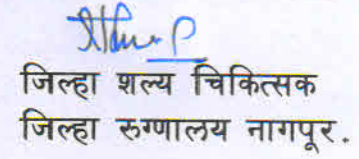 जिल्हा शल्य चिकित्सक
जिल्हा रुग्णालय नागपूर.